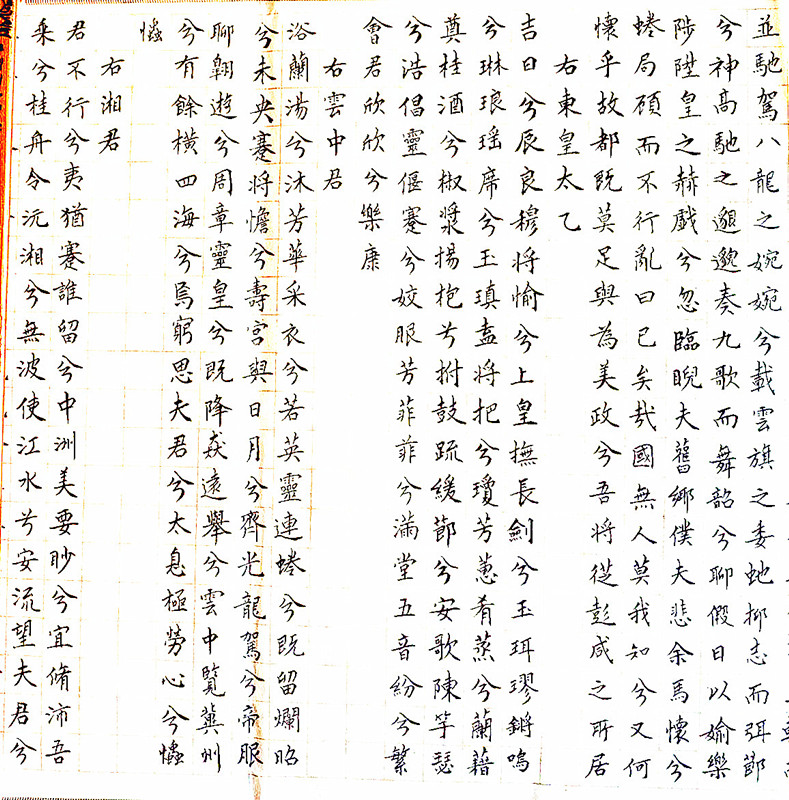 並馳駕八龍之婉婉兮載雲旗之委虵抑志而弭節
兮神高馳之邈邈奏九歌而舞韶兮聊假日以媮樂
陟陞皇之赫戲兮忽臨睨夫舊鄉僕夫悲余馬懷兮
蜷局顧而不行亂曰已矣哉國無人莫我知兮又何
懷乎故都既莫足與為美政兮吾將從彭咸之所居
右東皇太乙
吉日兮辰良穆將愉兮上皇撫長劍兮玉珥璆鏘鳴
兮琳琅瑤席兮玉瑱盍將把兮瓊芳蕙肴蒸兮蘭藉
奠桂酒兮椒漿揚枹兮拊鼓疏緩節兮安歌陳竽瑟
兮浩倡靈偃蹇兮姣服芳菲菲兮滿堂五音紛兮繁
會君欣欣兮樂康
右雲中君
浴蘭湯兮沐芳華采衣兮若英靈連蜷兮既留爛昭
兮未央蹇將憺兮壽宮與日月兮齊光龍駕兮帝服
聊翱遊兮周章靈皇兮既降猋遠舉兮雲中覽冀州
兮有餘橫四海兮焉窮思夫君兮太息極勞心兮𢥞
𢥞
右湘君
君不行兮夷猶蹇誰留兮中洲美要眇兮宜脩沛吾
乘兮桂舟令沅湘兮無波使江水兮安流望夫君兮